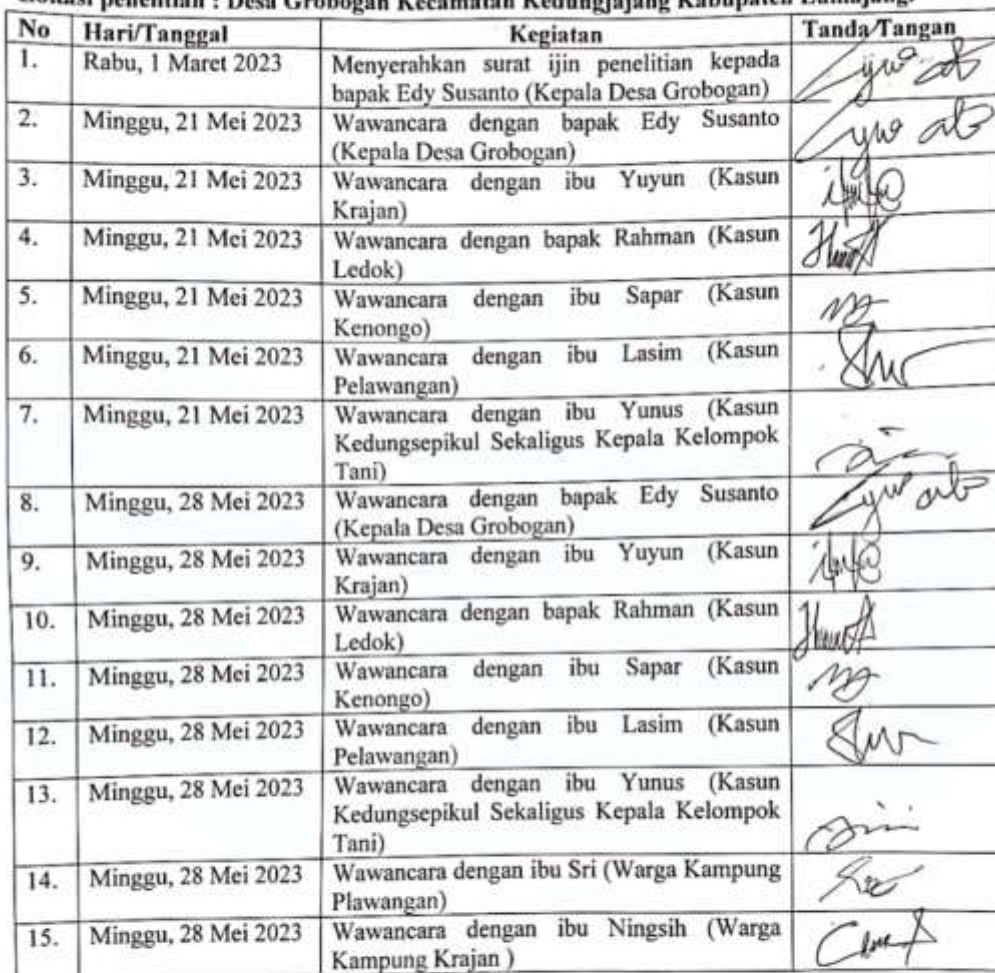 Lokasi penelitian : Desa Grobogan Kecamatan Kedungjajang Kabupaten Lumajang.
No Hari/Tanggal Kegiatan Tanda Tangan
1. Rabu, 1 Maret 2023 Menyerahkan surat ijin penelitian kepada
bapak Edy Susanto (Kepala Desa Grobogan)
2. Minggu, 21 Mei 2023 Wawancara dengan bapak Edy Susanto
(Kepala Desa Grobogan)
3. Minggu, 21 Mei 2023 Wawancara dengan ibu Yuyun (Kasun
Krajan)
4. Minggu, 21 Mei 2023 Wawancara dengan bapak Rahman (Kasun
Ledok)
5. Minggu, 21 Mei 2023 Wawancara dengan ibu Sapar (Kasun
Kenongo)
6. Minggu, 21 Mei 2023 Wawancara dengan ibu Lasim (Kasun
Pelawangan)
7. Minggu, 21 Mei 2023 Wawancara dengan ibu Yunus (Kasun
Kedungsepikul Sekaligus Kepala Kelompok
Tani)
8. Minggu, 28 Mei 2023 Wawancara dengan bapak Edy Susanto
(Kepala Desa Grobogan)
9. Minggu, 28 Mei 2023 Wawancara dengan ibu Yuyun (Kasun
Krajan)
10. Minggu, 28 Mei 2023 Wawancara dengan bapak Rahman (Kasun
Ledok)
11. Minggu, 28 Mei 2023 Wawancara dengan ibu Sapar (Kasun
Kenongo)
12. Minggu, 28 Mei 2023 Wawancara dengan ibu Lasim (Kasun
Pelawangan)
13. Minggu, 28 Mei 2023 Wawancara dengan ibu Yunus (Kasun
Kedungsepikul Sekaligus Kepala Kelompok
Tani)
14. Minggu, 28 Mei 2023 Wawancara dengan ibu Sri (Warga Kampung
Plawangan)
15. Minggu, 28 Mei 2023 Wawancara dengan ibu Ningsih (Warga
Kampung Krajan )